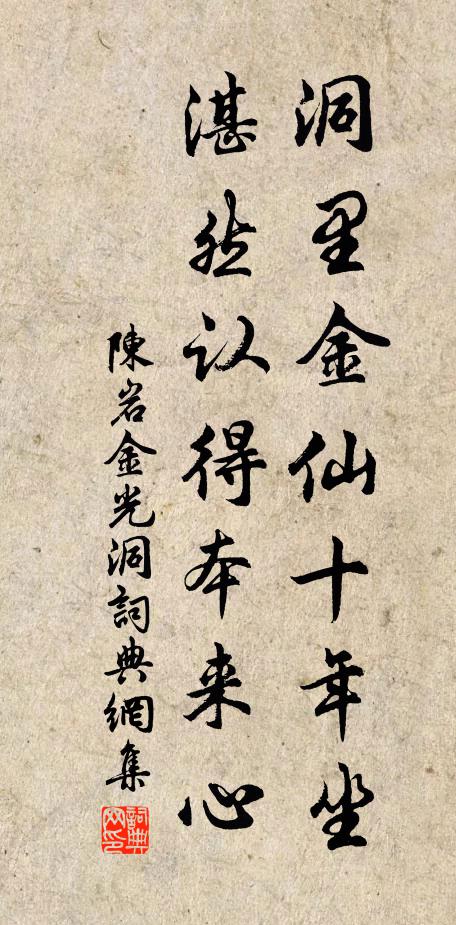 洞里金仙十年坐
湛然认得本来心
陳岩金光洞詞典網集
詞典网印